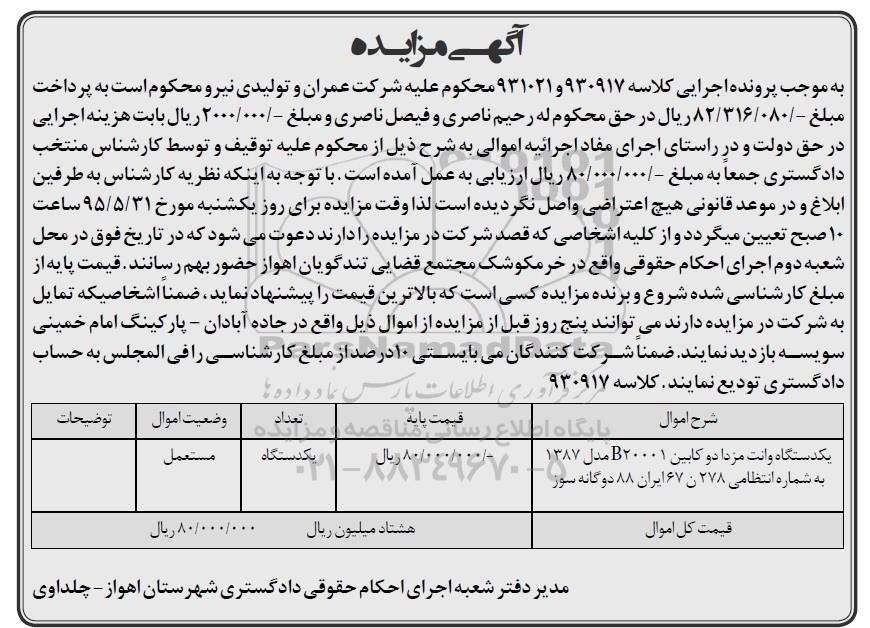 آگهی مزایده
به موجب پرونده اجرایی کلاسه ۹۳۰۹۱۷ و ۹۳۱۰۲۱ محکوم علیه شرکت عمران و تولیدی نیرو محکوم است به پرداخت
مبلغ -/۸۲/۳۱۶/۰۸۰ ریال در حق محکوم له رحیم ناصری و فیصل ناصری و مبلغ -/۲۰۰۰/۰۰۰ ریال بابت هزینه اجرایی
در حق دولت و در راستای اجرای مفاد اجرائیه اموالی به شرح ذیل از محکوم علیه توقیف و توسط کارشناس منتخب
دادگستری جمعاً به مبلغ -/۸۰/۰۰۰/۰۰۰ ریال ارزیابی به عمل آمده است. با توجه به اینکه نظریه کارشناس به طرفین
ابلاغ و در موعد قانونی هیچ اعتراضی واصل نگردیده است لذا وقت مزایده برای روز یکشنبه مورخ ۹۵/۵/۳۱ ساعت
۱۰ صبح تعیین میگردد و از کلیه اشخاصی که قصد شرکت در مزایده را دارند دعوت می شود که در تاریخ فوق در محل
شعبه دوم اجرای احکام حقوقی واقع در خرمکوشک مجتمع قضایی تندگویان اهواز حضور بهم رسانند. قیمت پایه از
مبلغ کارشناسی شده شروع و برنده مزایده کسی است که بالاترین قیمت را پیشنهاد نماید، ضمناً اشخاصیکه تمایل
به شرکت در مزایده دارند می توانند پنج روز قبل از مزایده از اموال ذیل واقع در جاده آبادان - پارکینگ امام خمینی
سویسه بازدید نمایند. ضمناً شرکت کنندگان می بایستی ۱۰ درصد از مبلغ کارشناسی را فی المجلس به حساب
دادگستری تودیع نمایند. کلاسه ۹۳۰۹۱۷
شرح اموال قیمت پایه تعداد وضعیت اموال توضیحات
یکدستگاه وانت مزدا دو کابین B۲۰۰۰۱ مدل ۱۳۸۷ -/۸۰/۰۰۰/۰۰۰ ریال یکدستگاه مستعمل
به شماره انتظامی ۲۷۸ ن ۶۷ ایران ۸۸ دوگانه سوز
قیمت کل اموال هشتاد میلیون ریال ۸۰/۰۰۰/۰۰۰ ریال
مدیر دفتر شعبه اجرای احکام حقوقی دادگستری شهرستان اهواز - چلداوی
ParsNamadData
مرکز فرآوری اطلاعات پارس نماد داده ها
پایگاه اطلاع رسانی مناقصه و مزایده
۰۲۱-۸۸۳۴۹۶۷۰-۵